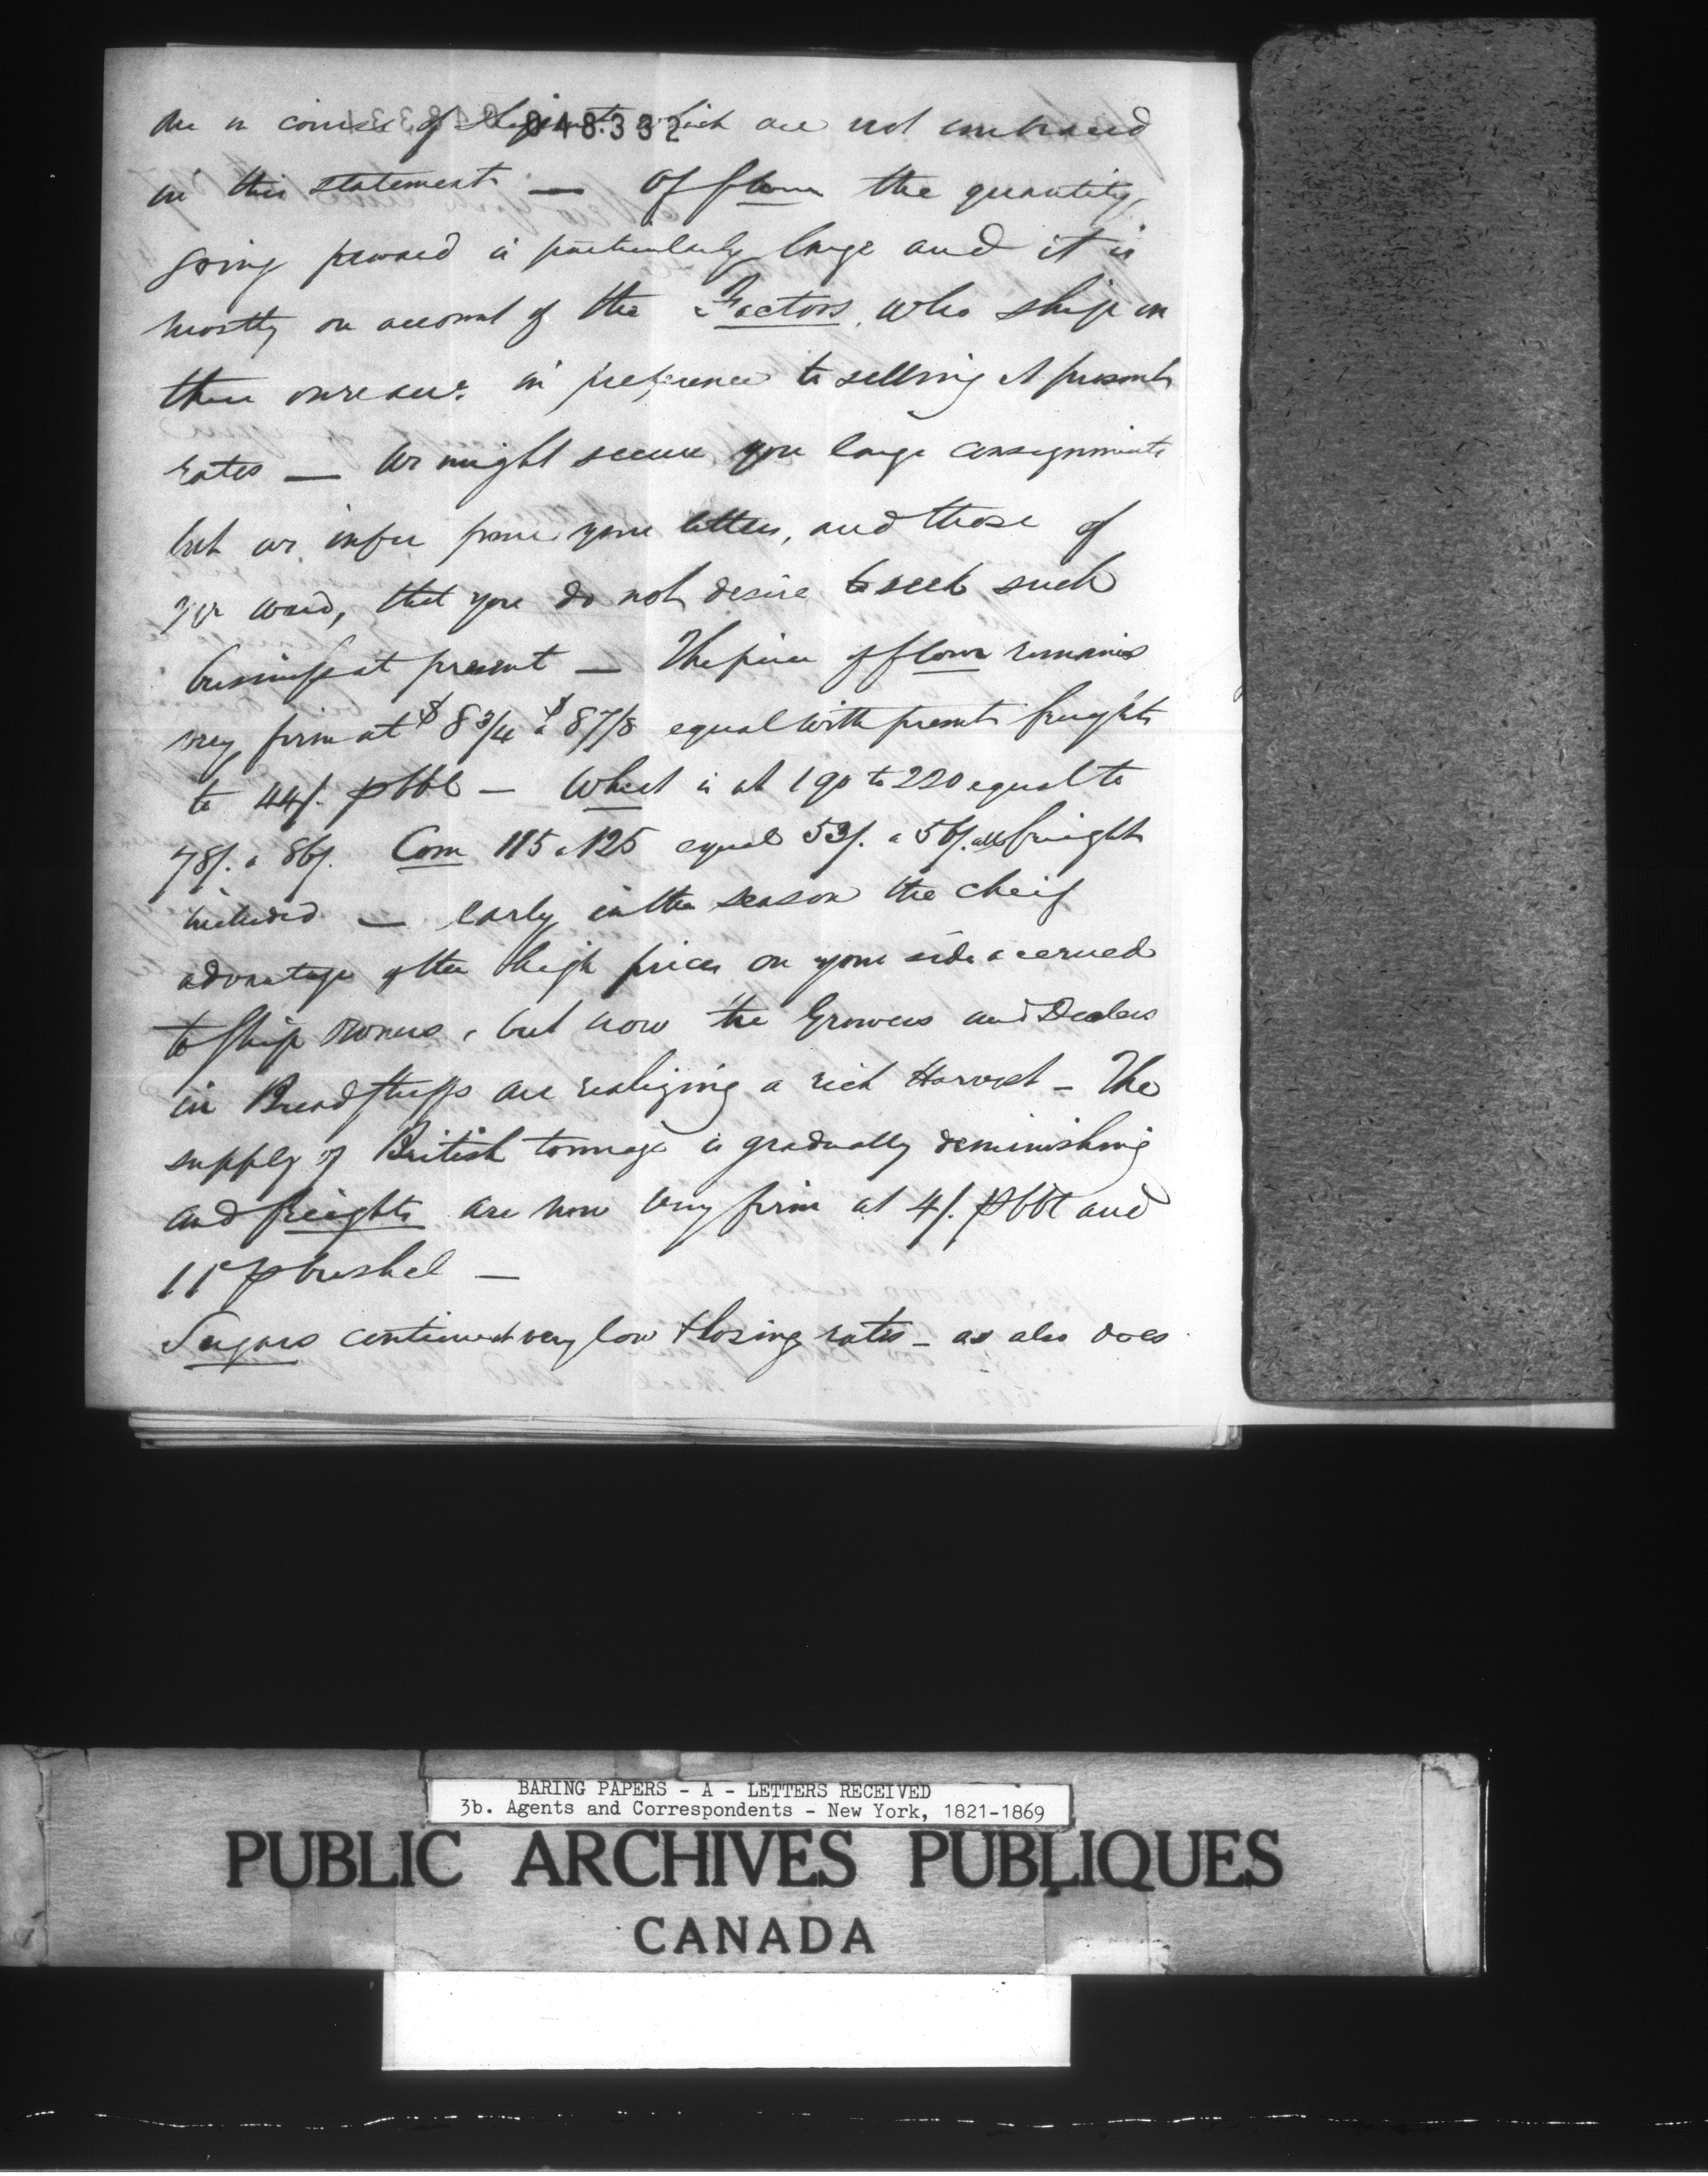 are in course of shipment which are not embraced
048332
in this statement — Of flour the quantity
going forward is particularly large and it is
mostly on account of the Factors, who ship on
their own acct. in preference to selling at present
rates — We might secure you large consignments
but we infer from your letters, and those of
Mr Ward, that you do not desire to seek such
business at present — The price of flour remains
very firm at $8 3/4 a $8 7/8 equal with present freights
to 44/. p bbl — Wheat is at 190 to 220 equal to
78/. a 86/. Corn 115 a 125 equal 53/. a 56/. all freight
included — early in the season the cheif
advantage of the high prices on your side accrued
to Ship owners, but now the Growers and Dealers
in Breadstuffs are realizing a rich Harvest — The
supply of British tonnage is gradually deminishing
and freights are now very firm at 4/. p bbl and
p bushel —
Sugars continue at very low & losing rates — as also does
BARING PAPERS - A - LETTERS RECEIVED
3b. Agents and Correspondents - New York, 1821-1869
PUBLIC ARCHIVES PUBLIQUES
CANADA